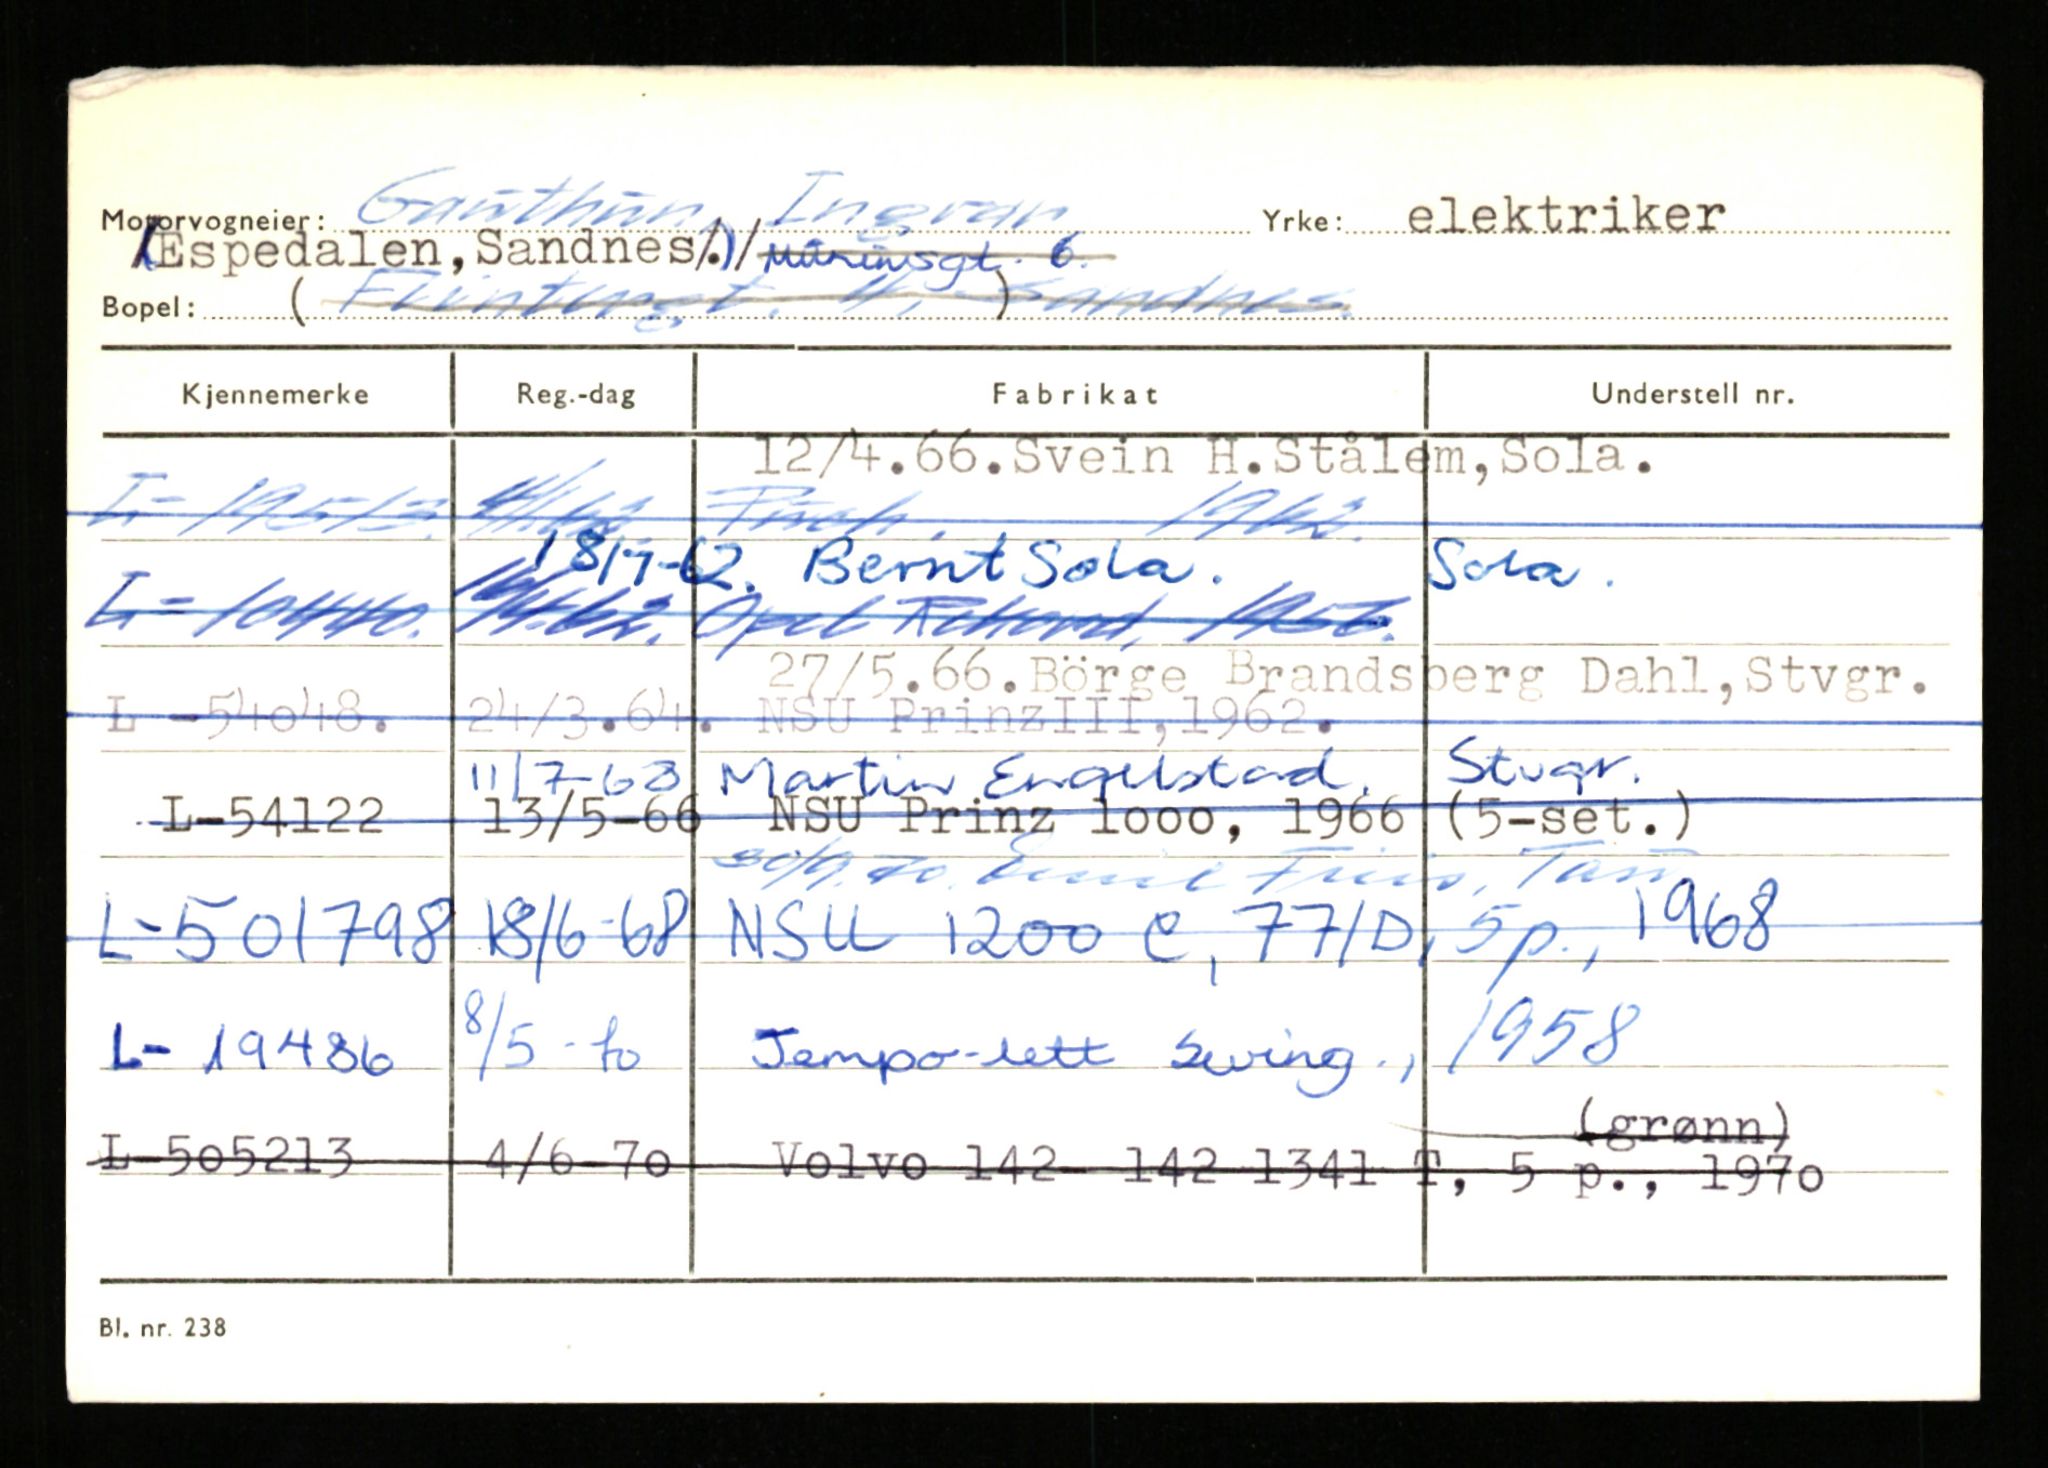 Motorvogneier: Gauthun, Ingvar Yrke: elektriker
(Espedalen,Sandnes/.)/ Marinsgt. 6.
Bopel: ( Flintergt. 4, ) Sandnes.
Kjennemerke Reg.-dag Fabrikat Understell nr.
12/4.66.Svein H.Stålem,Sola.
L-19513. Puch, 1962.
18/7-62. Bernt Sola. Sola.
L-10440. Opel Rekord, 1956.
27/5.66.Börge Brandsberg Dahl,Stvgr.
L -54048. 24/3.64. NSU PrinzIII,1962.
11/7-68 Martin Engelstad. Stvgr.
L-54122 13/5-66 NSU Prinz 1ooo, 1966 (5-set.)
30/9.70. Emil Friis, Tau
L-501798 18/6-68 NSU 1200 C, 77/D, 5p., 1968
L- 19486 8/5-70 Tempo-lett Swing., 1958
(grønn)
L-505213 4/6-70 Volvo 142- 142 1341 T, 5 p., 1970
Bl. nr. 238